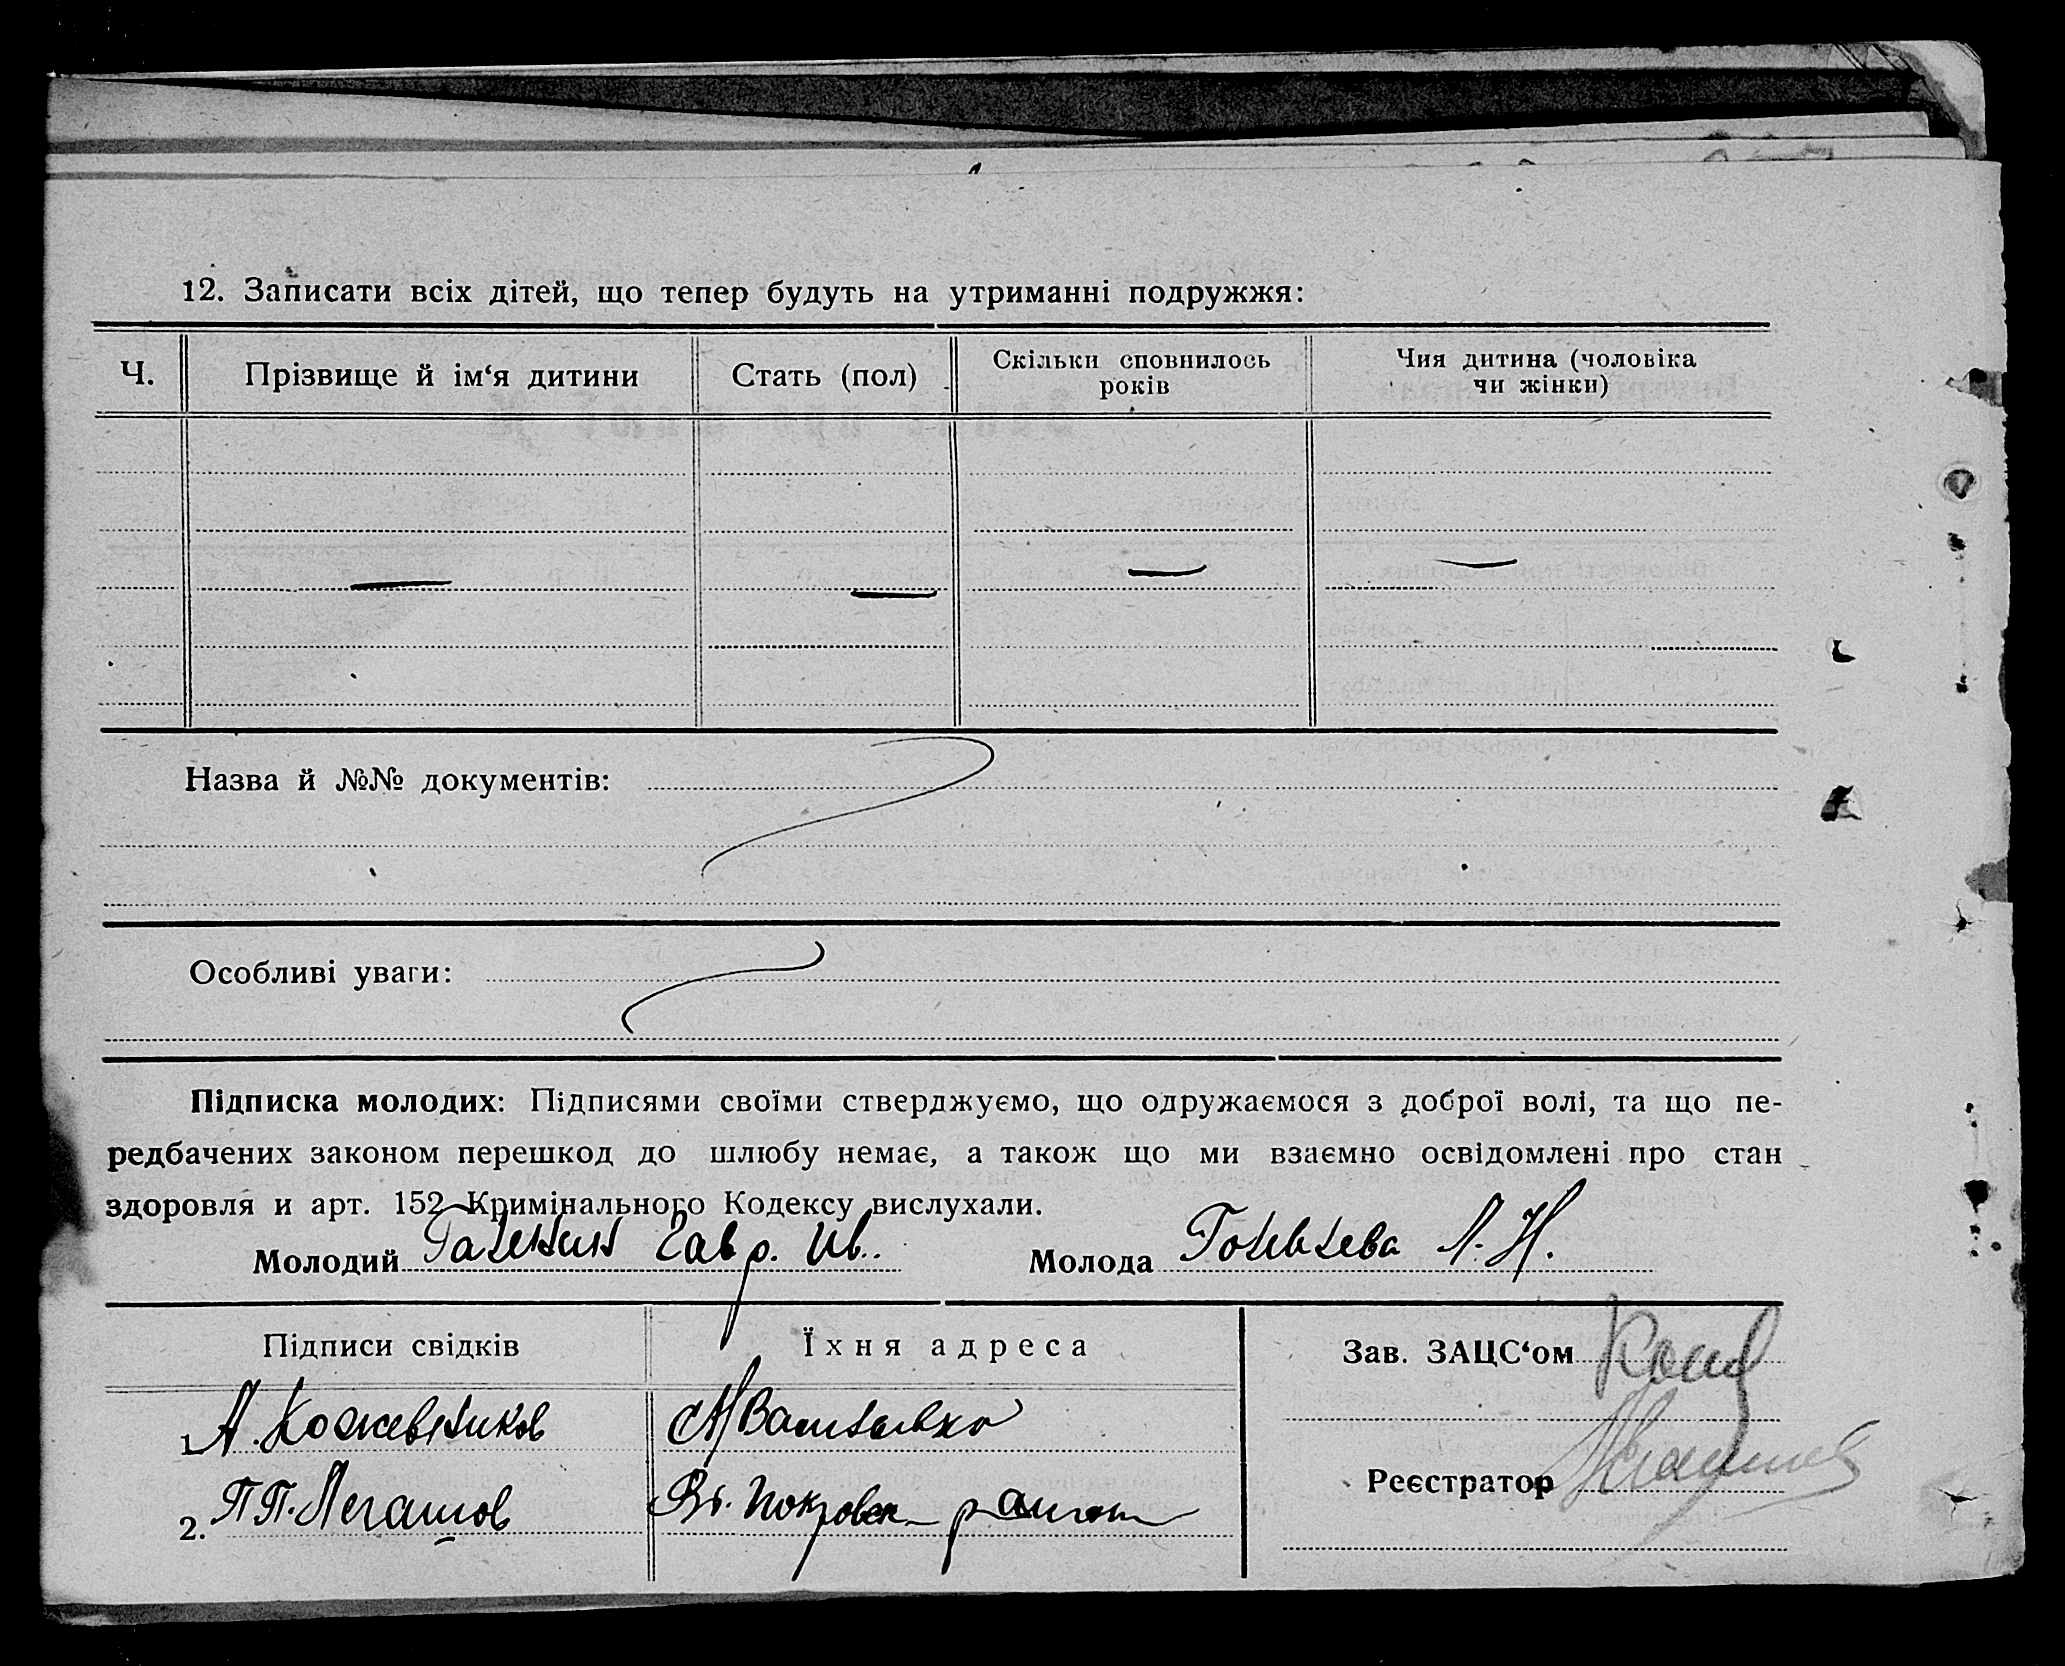 12. Записати всіх дітей, що тепер будуть на утриманні подружжя:
Ч. Прізвище й ім‘я дитини Стать (пол) Скільки сповнилось років Чия дитина (чоловіка чи жінки)
Назва й №№ документів:
Особливі уваги:
Підписка молодих: Підписями своїми стверджуємо, що одружаємося з доброї волі, та що пе-
редбачених законом перешкод до шлюбу немає, а також що ми взаємно освідомлені про стан
здоровля и арт. 152 Кримінального Кодексу вислухали.
Молодий Галенин Гавр. Ив. Молода Л. Н.
Підписи свідків Їхня адреса Зав. ЗАЦС‘ом
1. А. Кожевников
2. П. П. Легашов Покровск Реєстратор